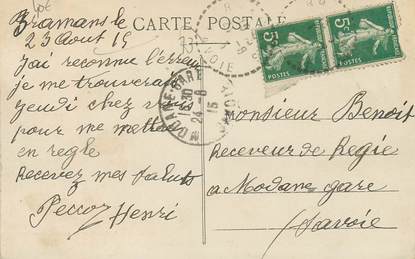 CARTE POSTALE
Bramans le
23 Aout 15
J'ai reconnu l'erreur
je me trouverai
jeudi chez vous
pour me mettre
en regle
Recevez mes saluts
Peccoz Henri
Monsieur Benoit
Receveur de Regie
a Modane gare
Savoie
5c
POSTES
5c
POSTES
MODANE-GARE
SAVOIE
24-8
15